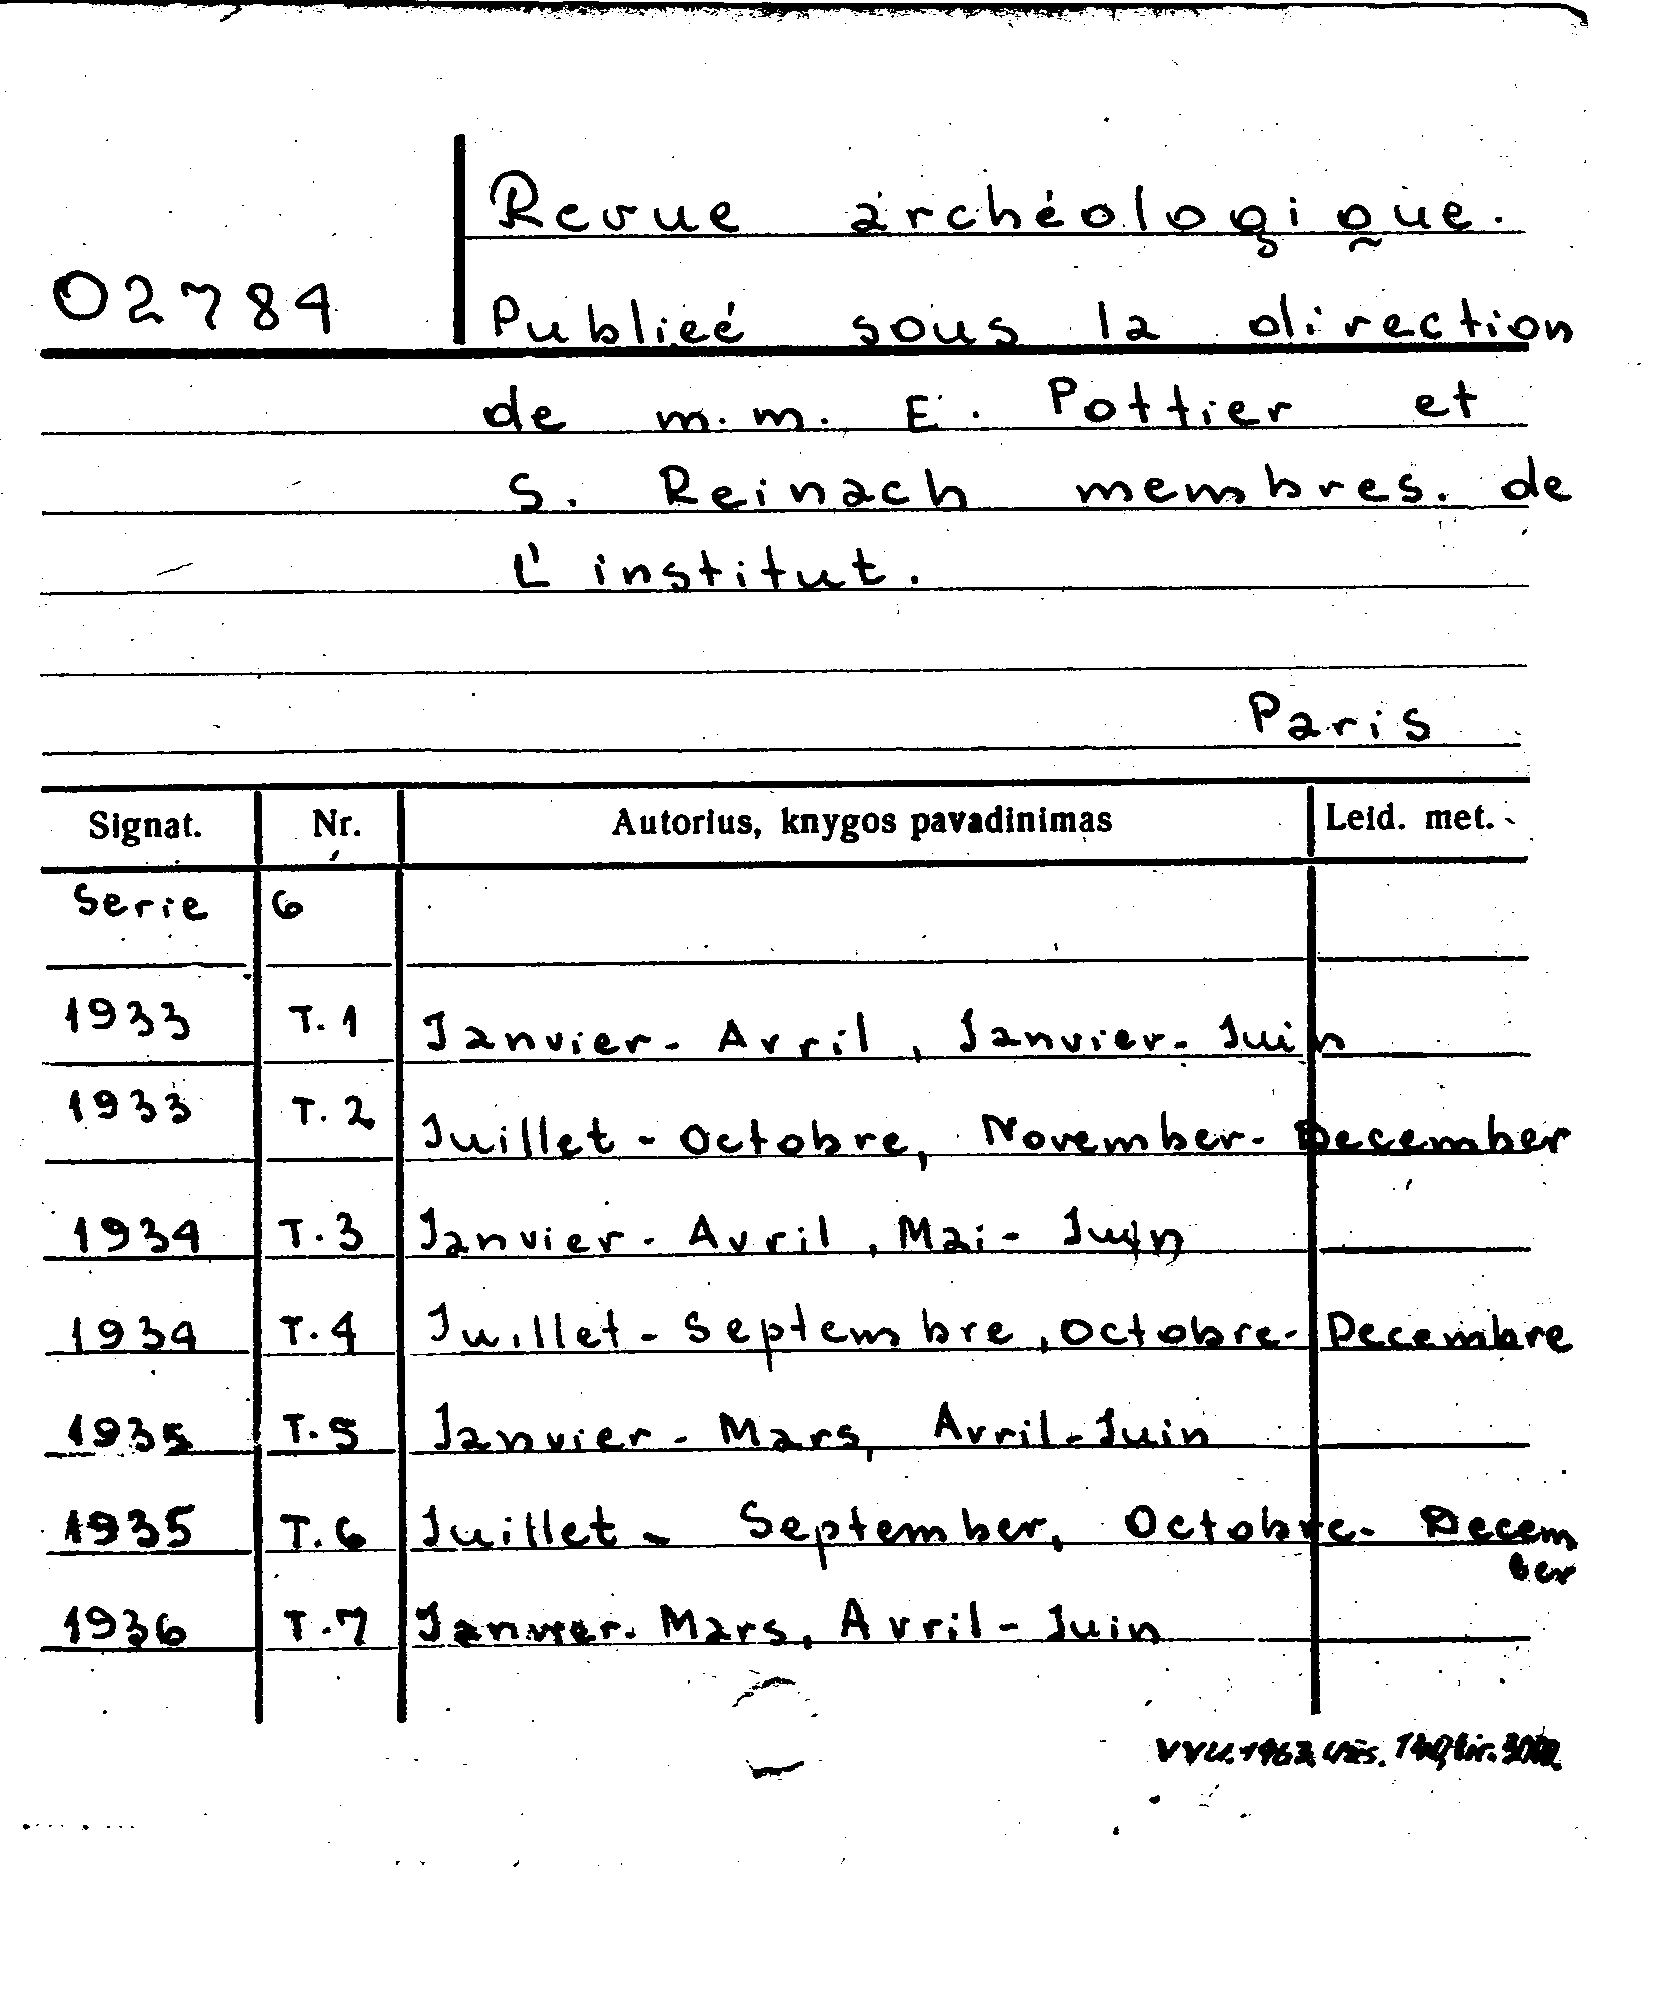 Revue archéologique.
02784 Publieé sous la direction
de m.m. E. Pottier et
S. Reinach membres. de
L' institut.
Paris
Signat. Nr. Autorius, knygos pavadinimas Leid. met.
Serie 6
1933 T. 1 Janvier - Avril, Janvier - Juin
1933 T. 2 Juillet - Octobre, November - December
1934 T. 3 Janvier - Avril, Mai - Juin
1934 T. 4 Juillet - Septembre, Octobre - Decembre
1935 T. 5 Janvier - Mars, Avril - Juin
1935 T. 6 Juillet - September, Octobre - Decem
ber
1936 T. 7 Janvier - Mars, Avril - Juin
VVU. 1962